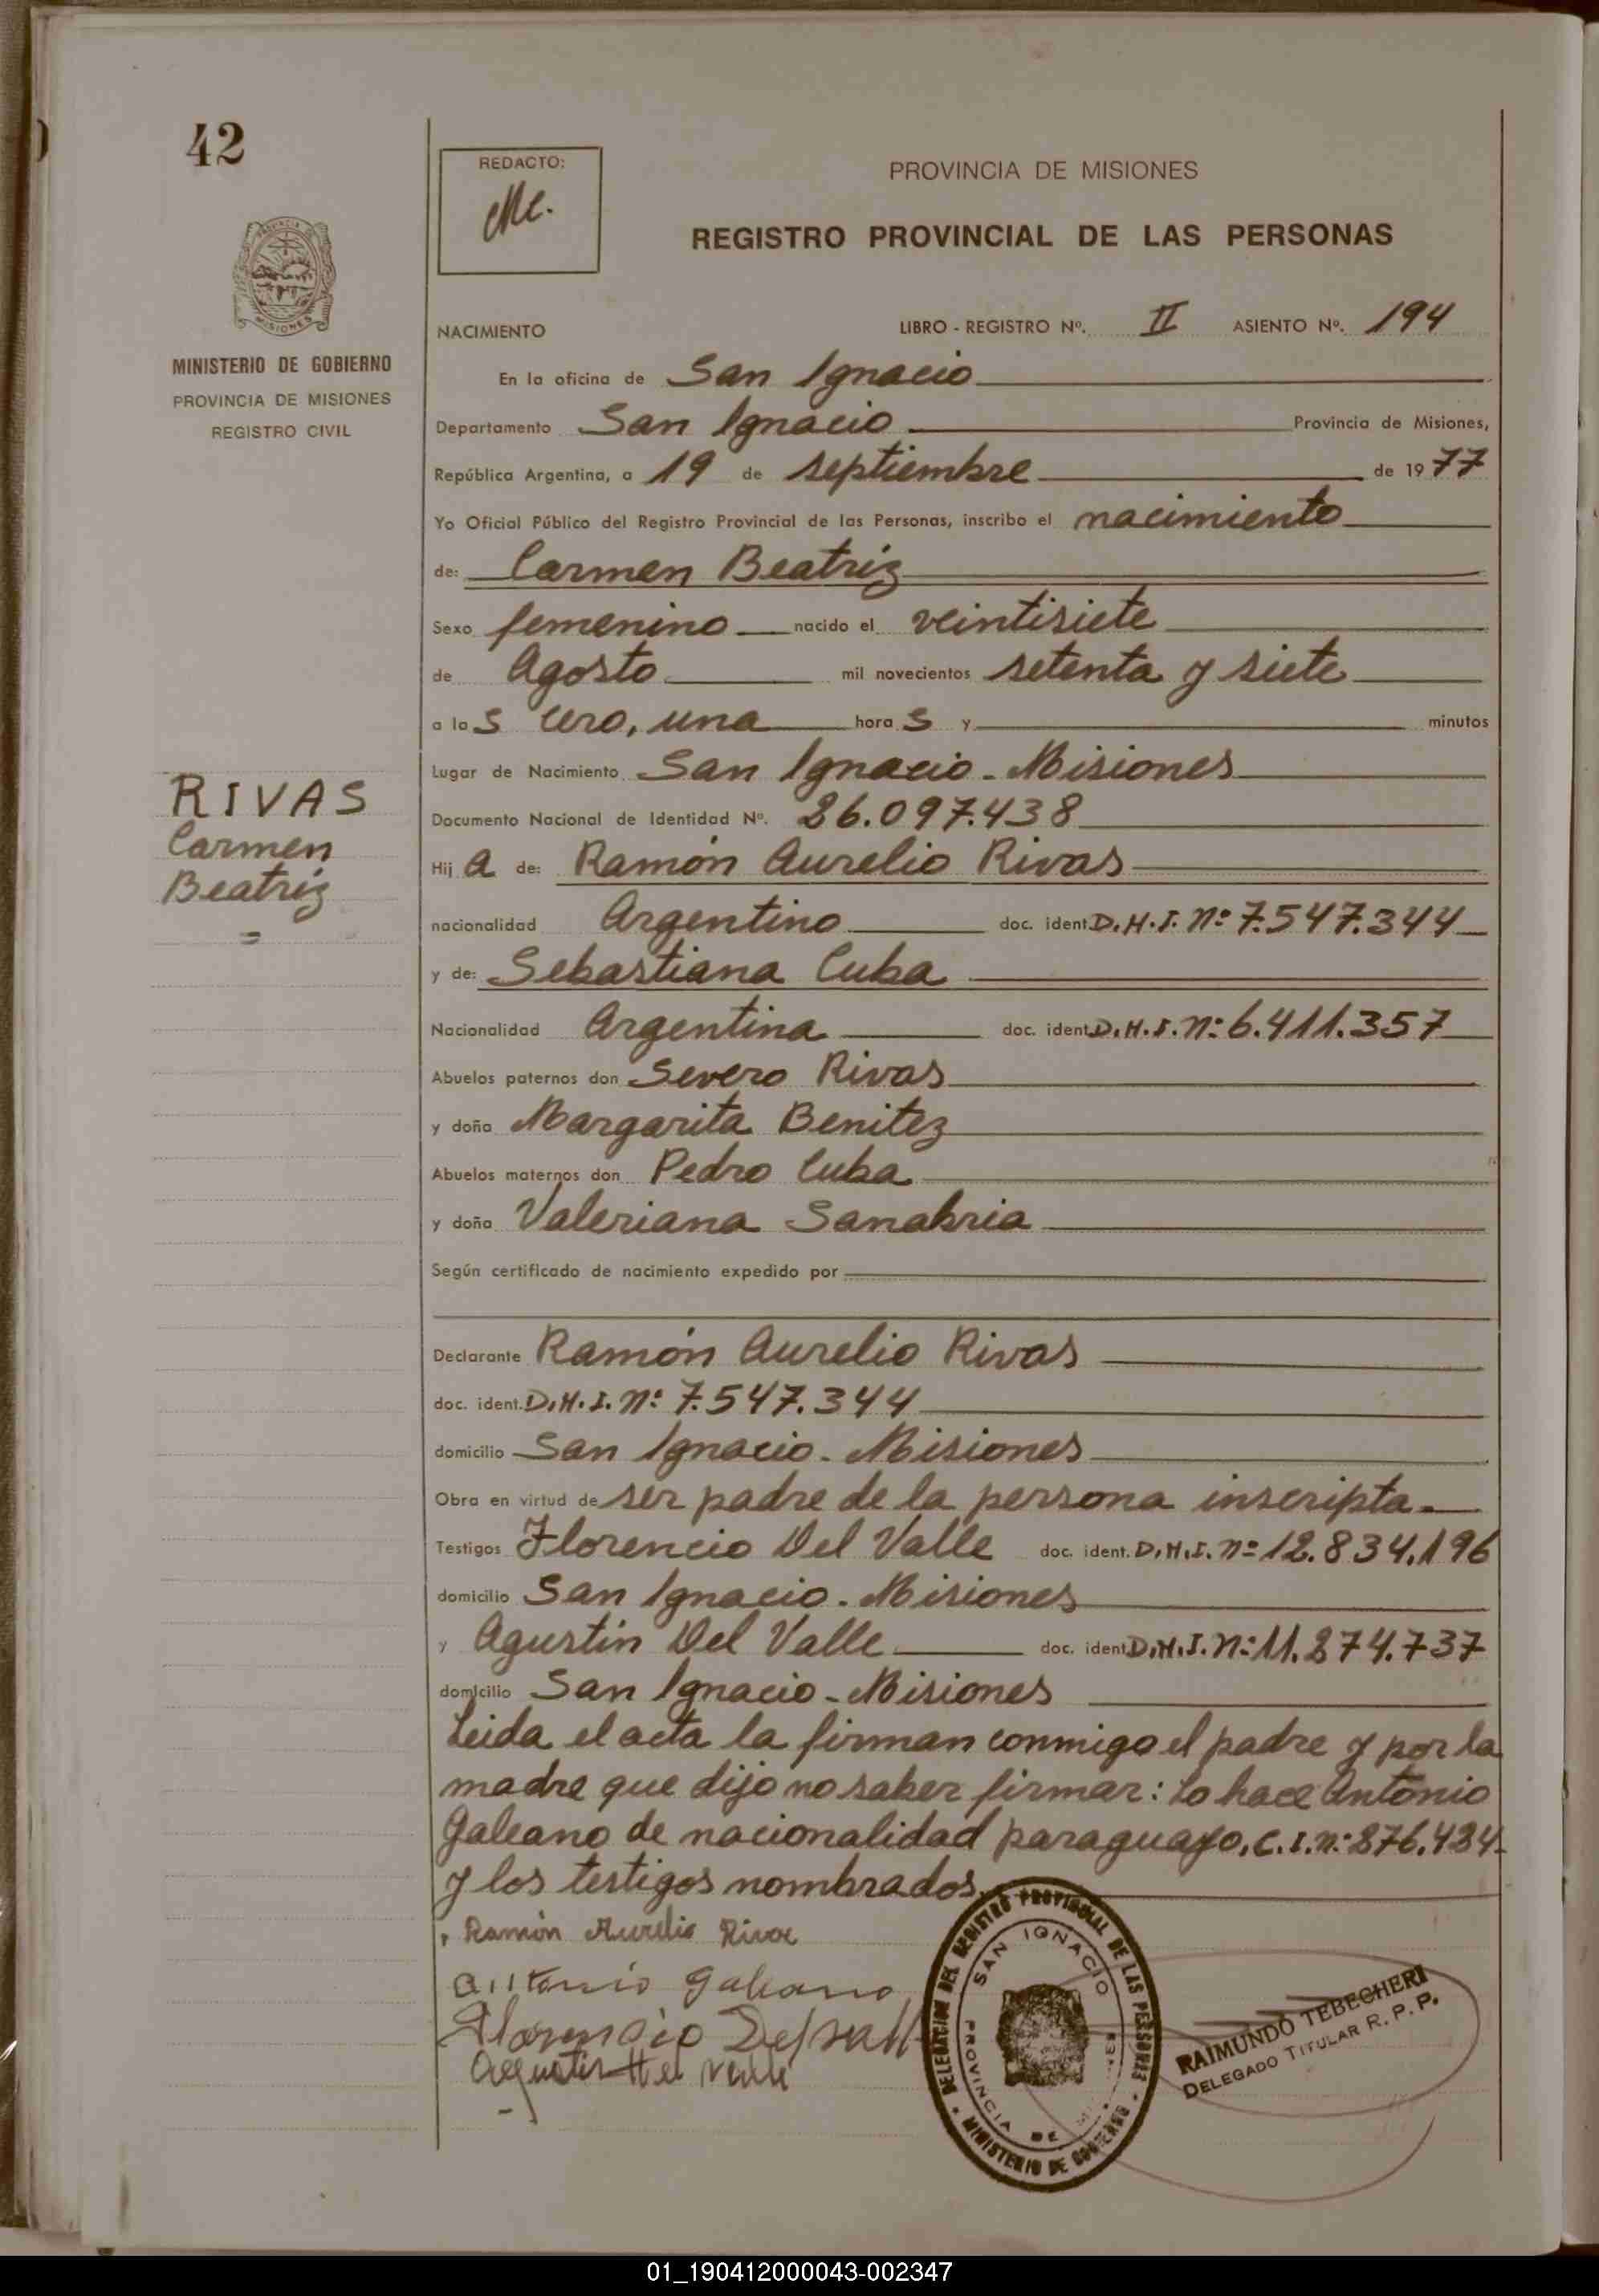 42
REDACTO:
Mc.
PROVINCIA DE MISIONES
REGISTRO PROVINCIAL DE LAS PERSONAS
MISIONES
MINISTERIO DE GOBIERNO
PROVINCIA DE MISIONES
REGISTRO CIVIL
NACIMIENTO LIBRO - REGISTRO Nº. II ASIENTO Nº. 194
En la oficina de San Ignacio
Departamento San Ignacio Provincia de Misiones,
República Argentina, a 19 de septiembre de 1977
Yo Oficial Público del Registro Provincial de las Personas, inscribo el nacimiento
de: Carmen Beatriz
Sexo femenino nacido el veintisiete
de Agosto mil novecientos setenta y siete
a las cero, una horas y minutos
Lugar de Nacimiento San Ignacio - Misiones
RIVAS
Carmen
Beatriz
=
Documento Nacional de Identidad Nº. 26.097.438
Hija de: Ramón Aurelio Rivas
nacionalidad Argentino doc. ident. D.N.I. Nº 7.547.344
y de: Sebastiana Cuba
Nacionalidad Argentina doc. ident. D.N.I. Nº 6.411.357
Abuelos paternos don Severo Rivas
y doña Margarita Benitez
Abuelos maternos don Pedro Cuba
y doña Valeriana Sanabria
Según certificado de nacimiento expedido por
Declarante Ramón Aurelio Rivas
doc. ident. D.N.I. Nº 7.547.344
domicilio San Ignacio - Misiones
Obra en virtud de ser padre de la persona inscripta.
Testigos Florencio Del Valle doc. ident. D.N.I. Nº 12.834.196
domicilio San Ignacio - Misiones
y Agustín Del Valle doc. ident. D.N.I. Nº 11.274.737
domicilio San Ignacio - Misiones
Leida el acta la firman conmigo el padre y por la
madre que dijo no saber firmar: Lo hace Antonio
Galeano de nacionalidad paraguayo, C.I. nº: 276.424
y los testigos nombrados.
Ramón Aurelio Rivas
Antonio Galeano
Florencio Del Vall
Agustin del Valle
DELEGACION DEL REGISTRO PROVINCIAL DE LAS PERSONAS
SAN IGNACIO
PROVINCIA DE MISIONES
MINISTERIO DE GOBIERNO
RAIMUNDO TEBECHERI
DELEGADO TITULAR R. P. P.
01_190412000043-002347